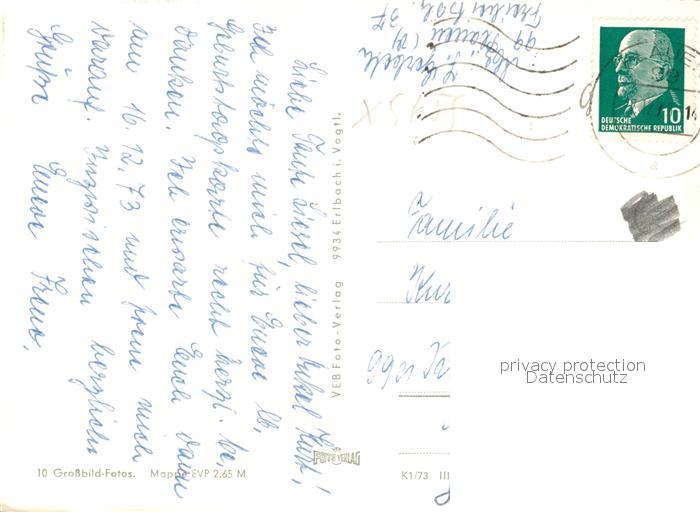 Liebe Tante Liesel, lieber Onkel Kurt!
Ich möchte mich für Eure lb.
Geburtstagskarte recht herzl. be-
danken. Ich erwarte Euch dann
am 16.12.73 und freue mich
darauf. Inzwischen herzliche
Grüße Eure Irene.
10 Großbild-Fotos. Mappe EVP 2.65 M
VEB Foto-Verlag 9934 Erlbach i. Vogtl.
FOTO VERLAG
K1/73 III
99 Plauen
DEUTSCHE
DEMOKRATISCHE REPUBLIK
10
Familie
Kur
9901
privacy protection
Datenschutz